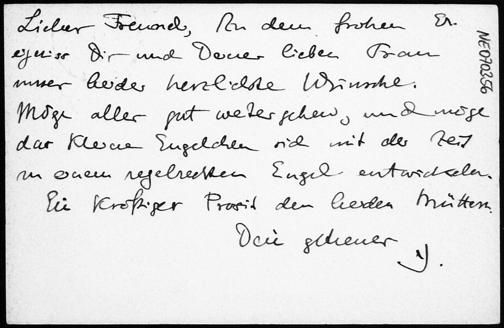 Lieber Freund, Zu dem frohen Er-
eigniss Dir und Deiner lieben Frau
unser beider herzlichste Wünsche.
Möge alles gut weitergehen, und möge
das kleine Engelchen sich mit der Zeit
zu einem regelrechten Engel entwickeln.
Ein kräftiger Prosit den beiden Müttern.
Dein getreuer
NE070356